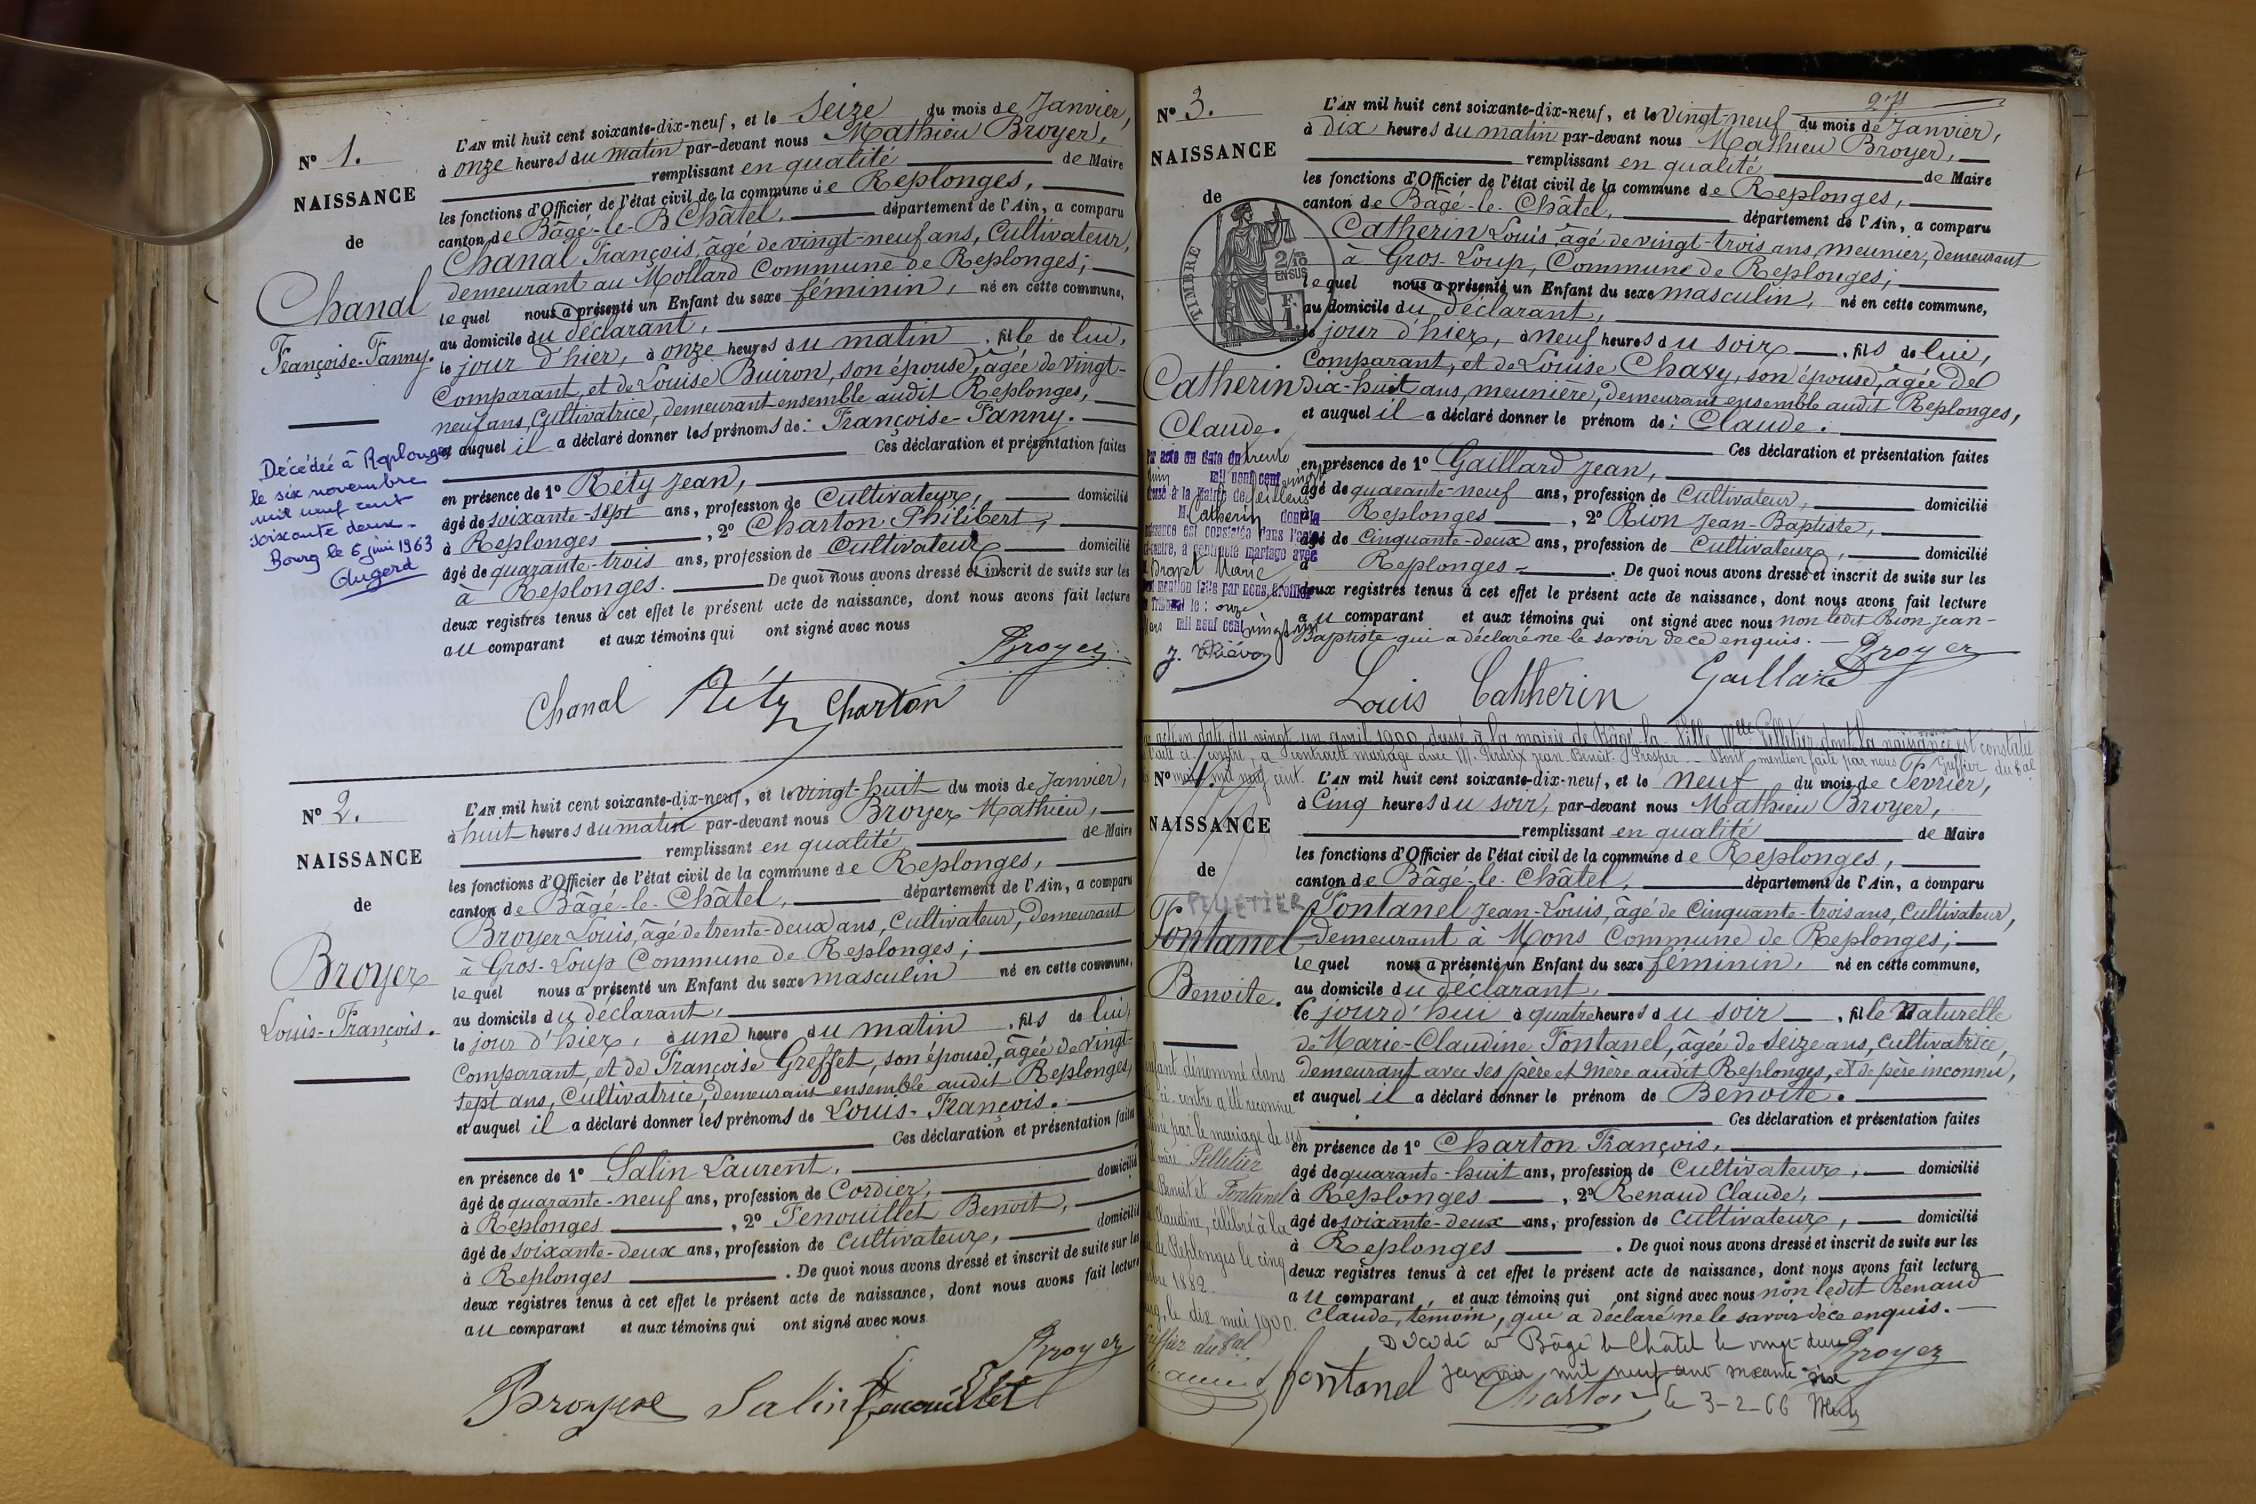 N° 1.
NAISSANCE
de
Chanal
Françoise-Fanny.
Décédée à Replonges
le six novembre
mil neuf cent
soixante deux.
Bourg le 6 juin 1963
Augerd
L'AN mil huit cent soixante-dix-neuf, et le Seize du mois de Janvier,
à onze heures du matin par-devant nous Mathieu Broyer,
remplissant en qualité de Maire
les fonctions d'Officier de l'état civil de la commune de Replonges,
canton de Bâgé-le-B Châtel, département de l'Ain, a comparu
Chanal François, âgé de vingt-neuf ans, Cultivateur,
demeurant au Mollard Commune de Replonges;
lequel nous a présenté un Enfant du sexe féminin, né en cette commune,
au domicile du déclarant,
le jour d'hier, à onze heures du matin, fille de lui,
Comparant, et de Louise Buiron, son épouse, âgée de vingt-
neuf ans, Cultivatrice, demeurant ensemble audit Replonges,
et auquel il a déclaré donner les prénoms de: Françoise-Fanny.
Ces déclaration et présentation faites
en présence de 1° Réty Jean,
âgé de soixante-sept ans, profession de Cultivateur, domicilié
à Replonges, 2° Charton Philibert,
âgé de quarante-trois ans, profession de Cultivateur domicilié
à Replonges. De quoi nous avons dressé et inscrit de suite sur les
deux registres tenus à cet effet le présent acte de naissance, dont nous avons fait lecture
au comparant et aux témoins qui ont signé avec nous
Broyer
Chanal Réty Charton
N° 2.
NAISSANCE
de
Broyer
Louis-François.
L'AN mil huit cent soixante-dix-neuf, et le vingt-huit du mois de Janvier,
à huit heures du matin par-devant nous Broyer Mathieu,
remplissant en qualité de Maire
les fonctions d'Officier de l'état civil de la commune de Replonges,
canton de Bâgé-le-Châtel, département de l'Ain, a comparu
Broyer Louis, âgé de trente-deux ans, Cultivateur, demeurant
à Gros-Loup Commune de Replonges;
lequel nous a présenté un Enfant du sexe masculin né en cette commune,
au domicile du déclarant,
le jour d'hier, à une heure du matin, fils de lui,
Comparant, et de Françoise Greffet, son épouse, âgée de vingt-
sept ans, Cultivatrice, demeurant ensemble audit Replonges,
et auquel il a déclaré donner les prénoms de Louis-François.
Ces déclaration et présentation faites
en présence de 1° Salin Laurent,
âgé de quarante-neuf ans, profession de Cordier, domicilié
à Replonges, 2° Fenouillet Benoit,
âgé de soixante-deux ans, profession de Cultivateur, domicilié
à Replonges. De quoi nous avons dressé et inscrit de suite sur les
deux registres tenus à cet effet le présent acte de naissance, dont nous avons fait lecture
au comparant et aux témoins qui ont signé avec nous
Broyer
Broyer Salin Fenouillet
N° 3.
NAISSANCE
de
TIMBRE
2/10
EN SUS
F.
1.
Catherin
Claude.
Par acte en date du trente
juin mil neuf cent
Catherin dont la
naissance est constatée dans l'acte
ci-contre, a contracté mariage avec
Brayet Marie
mention faite par nous, greffier
onze
Mars mil neuf cent vingt un
L'AN mil huit cent soixante-dix-neuf, et le vingt-neuf du mois de Janvier,
à dix heures du matin par-devant nous Mathieu Broyer,
remplissant en qualité de Maire
les fonctions d'Officier de l'état civil de la commune de Replonges,
canton de Bâgé-le-Châtel, département de l'Ain, a comparu
Catherin Louis, âgé de vingt-trois ans, meunier, demeurant
à Gros-Loup, Commune de Replonges;
lequel nous a présenté un Enfant du sexe masculin, né en cette commune,
au domicile du déclarant,
le jour d'hier, à neuf heures du soir, fils de lui,
Comparant, et de Louise Chavy, son épouse, âgée de
dix-huit ans, meunière, demeurant ensemble audit Replonges,
et auquel il a déclaré donner le prénom de: Claude.
Ces déclaration et présentation faites
en présence de 1° Gaillard Jean,
âgé de quarante-neuf ans, profession de Cultivateur, domicilié
à Replonges, 2° Rion Jean-Baptiste,
âgé de Cinquante-deux ans, profession de Cultivateur, domicilié
à Replonges. De quoi nous avons dressé et inscrit de suite sur les
deux registres tenus à cet effet le présent acte de naissance, dont nous avons fait lecture
au comparant et aux témoins qui ont signé avec nous non ledit Rion Jean-
Baptiste qui a déclaré ne le savoir de ce enquis.
Broyer
Louis Catherin Gaillard
acte en date du vingt un avril 1900, dressé à la mairie de Bâgé-la-Ville, Melle Pelletier dont la naissance est constatée
l'acte ci-contre, a contracté mariage avec M. Perdrix Jean Benoît Prosper. Dont mention faite par nous Greffier du Bal
mai mil neuf cent.
N° 4.
NAISSANCE
de
PELLETIER
Fontanel
Benoite.
enfant dénommé dans
ci-contre a été reconnu
par le mariage de ses
mère Pelletier
Benoit et Fontanel
Claudine, célébré à la
de Replonges le cinq
1882.
le dix mai 1900.
Greffier du Bal
L'AN mil huit cent soixante-dix-neuf, et le neuf du mois de Février,
à Cinq heures du soir, par-devant nous Mathieu Broyer,
remplissant en qualité de Maire
les fonctions d'Officier de l'état civil de la commune de Replonges,
canton de Bâgé-le-Châtel, département de l'Ain, a comparu
Fontanel Jean-Louis, âgé de Cinquante-trois ans, Cultivateur,
demeurant à Mons Commune de Replonges;
lequel nous a présenté un Enfant du sexe féminin, né en cette commune,
au domicile du déclarant,
le jour d'hui à quatre heures du soir, fille Naturelle
de Marie-Claudine Fontanel, âgée de Seize ans, Cultivatrice,
demeurant avec ses père et mère audit Replonges, et de père inconnu,
et auquel il a déclaré donner le prénom de Benoite.
Ces déclaration et présentation faites
en présence de 1° Charton François,
âgé de quarante-huit ans, profession de Cultivateur, domicilié
à Replonges, 2° Renaud Claude,
âgé de soixante-deux ans, profession de Cultivateur, domicilié
à Replonges. De quoi nous avons dressé et inscrit de suite sur les
deux registres tenus à cet effet le présent acte de naissance, dont nous avons fait lecture
au comparant, et aux témoins qui ont signé avec nous non ledit Renaud
Claude, témoin, que a déclaré ne le savoir de ce enquis.
Décédé à Bâgé le Châtel le vingt deux
janvier mil neuf cent soixante six
Broyer
Fontanel Charton le 3-2-66